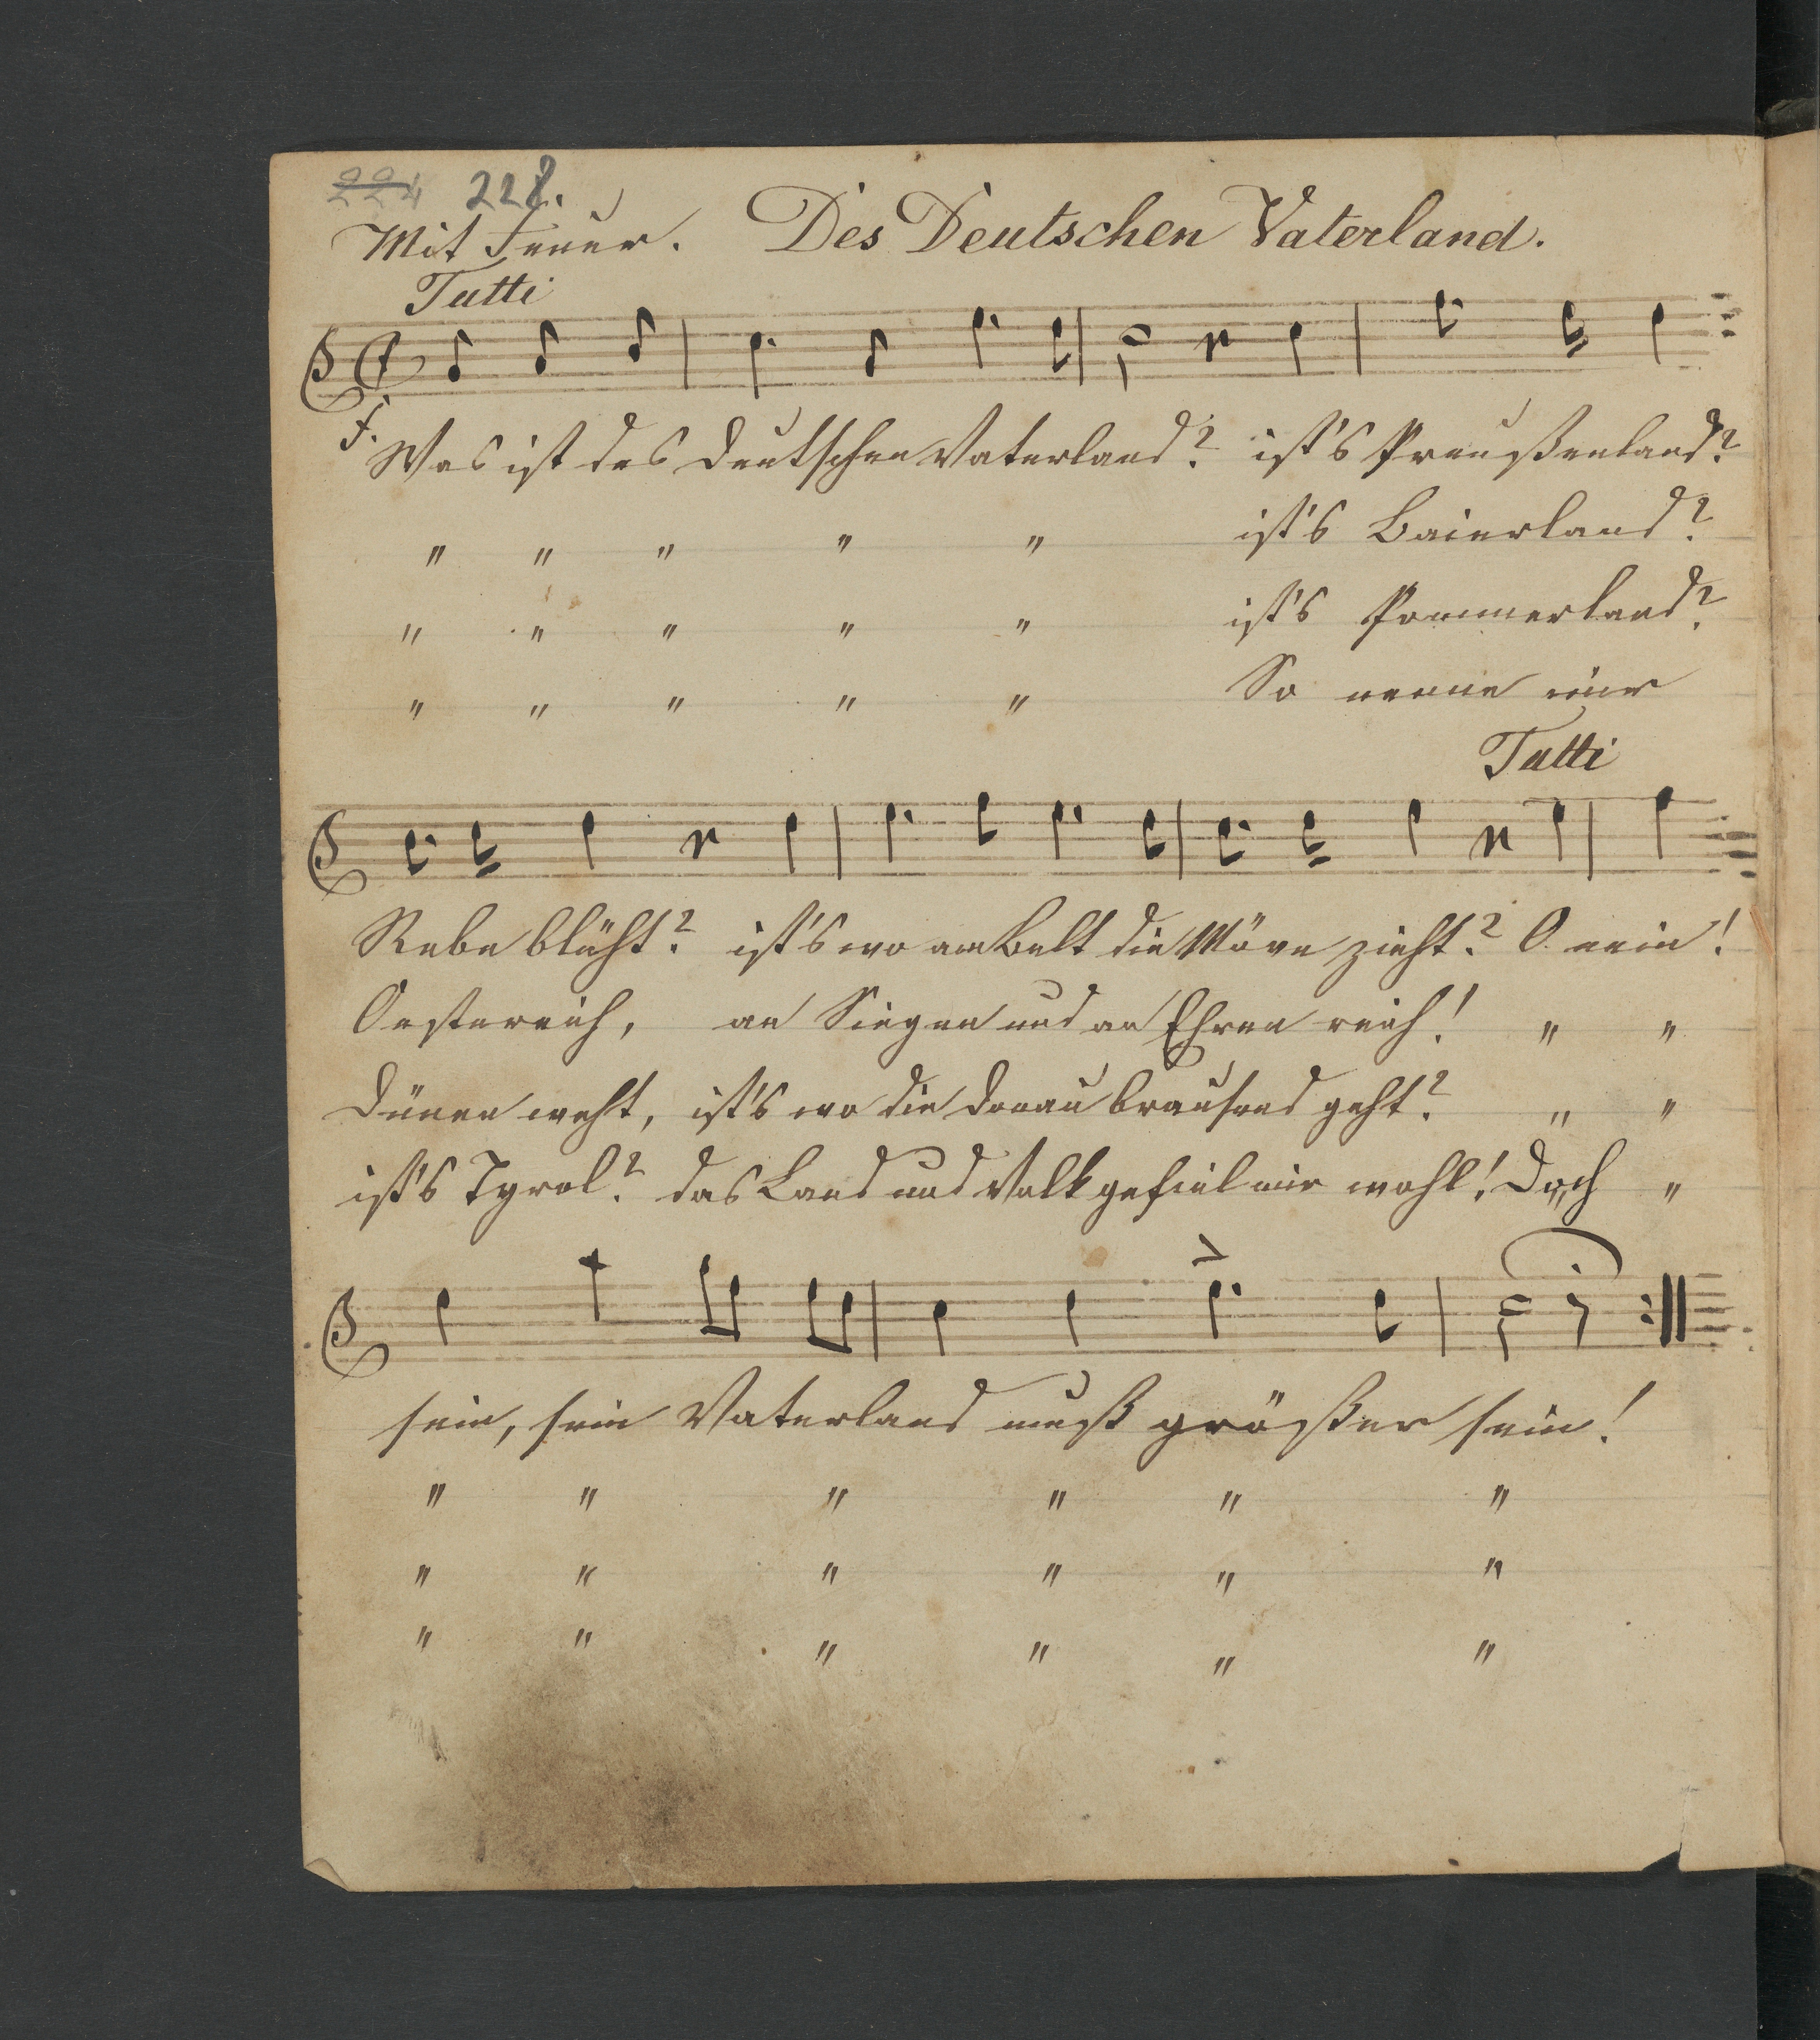 224 228.
Mit Feuer. Des Deutschen Vaterland.
Tutti
f. Was ist des Deutschen Vaterland? ist's Preußenland?
" " " " " ist's Baierland?
" " " " " ist's Pommerland?
" " " " " So nenne mir
Tutti
Rebe blüht? ist's wo am Belt die Möve zieht? O nein!
Oesterreich, an Siegen und an Ehren reich! " "
Dünen weht, ist's wo die Donau brausend geht? " "
ist's Tyrol? das Land und Volk gefiel mir wohl! Doch "
sein, sein Vaterland muß größer sein!
" " " " " "
" " " " " "
" " " " " "